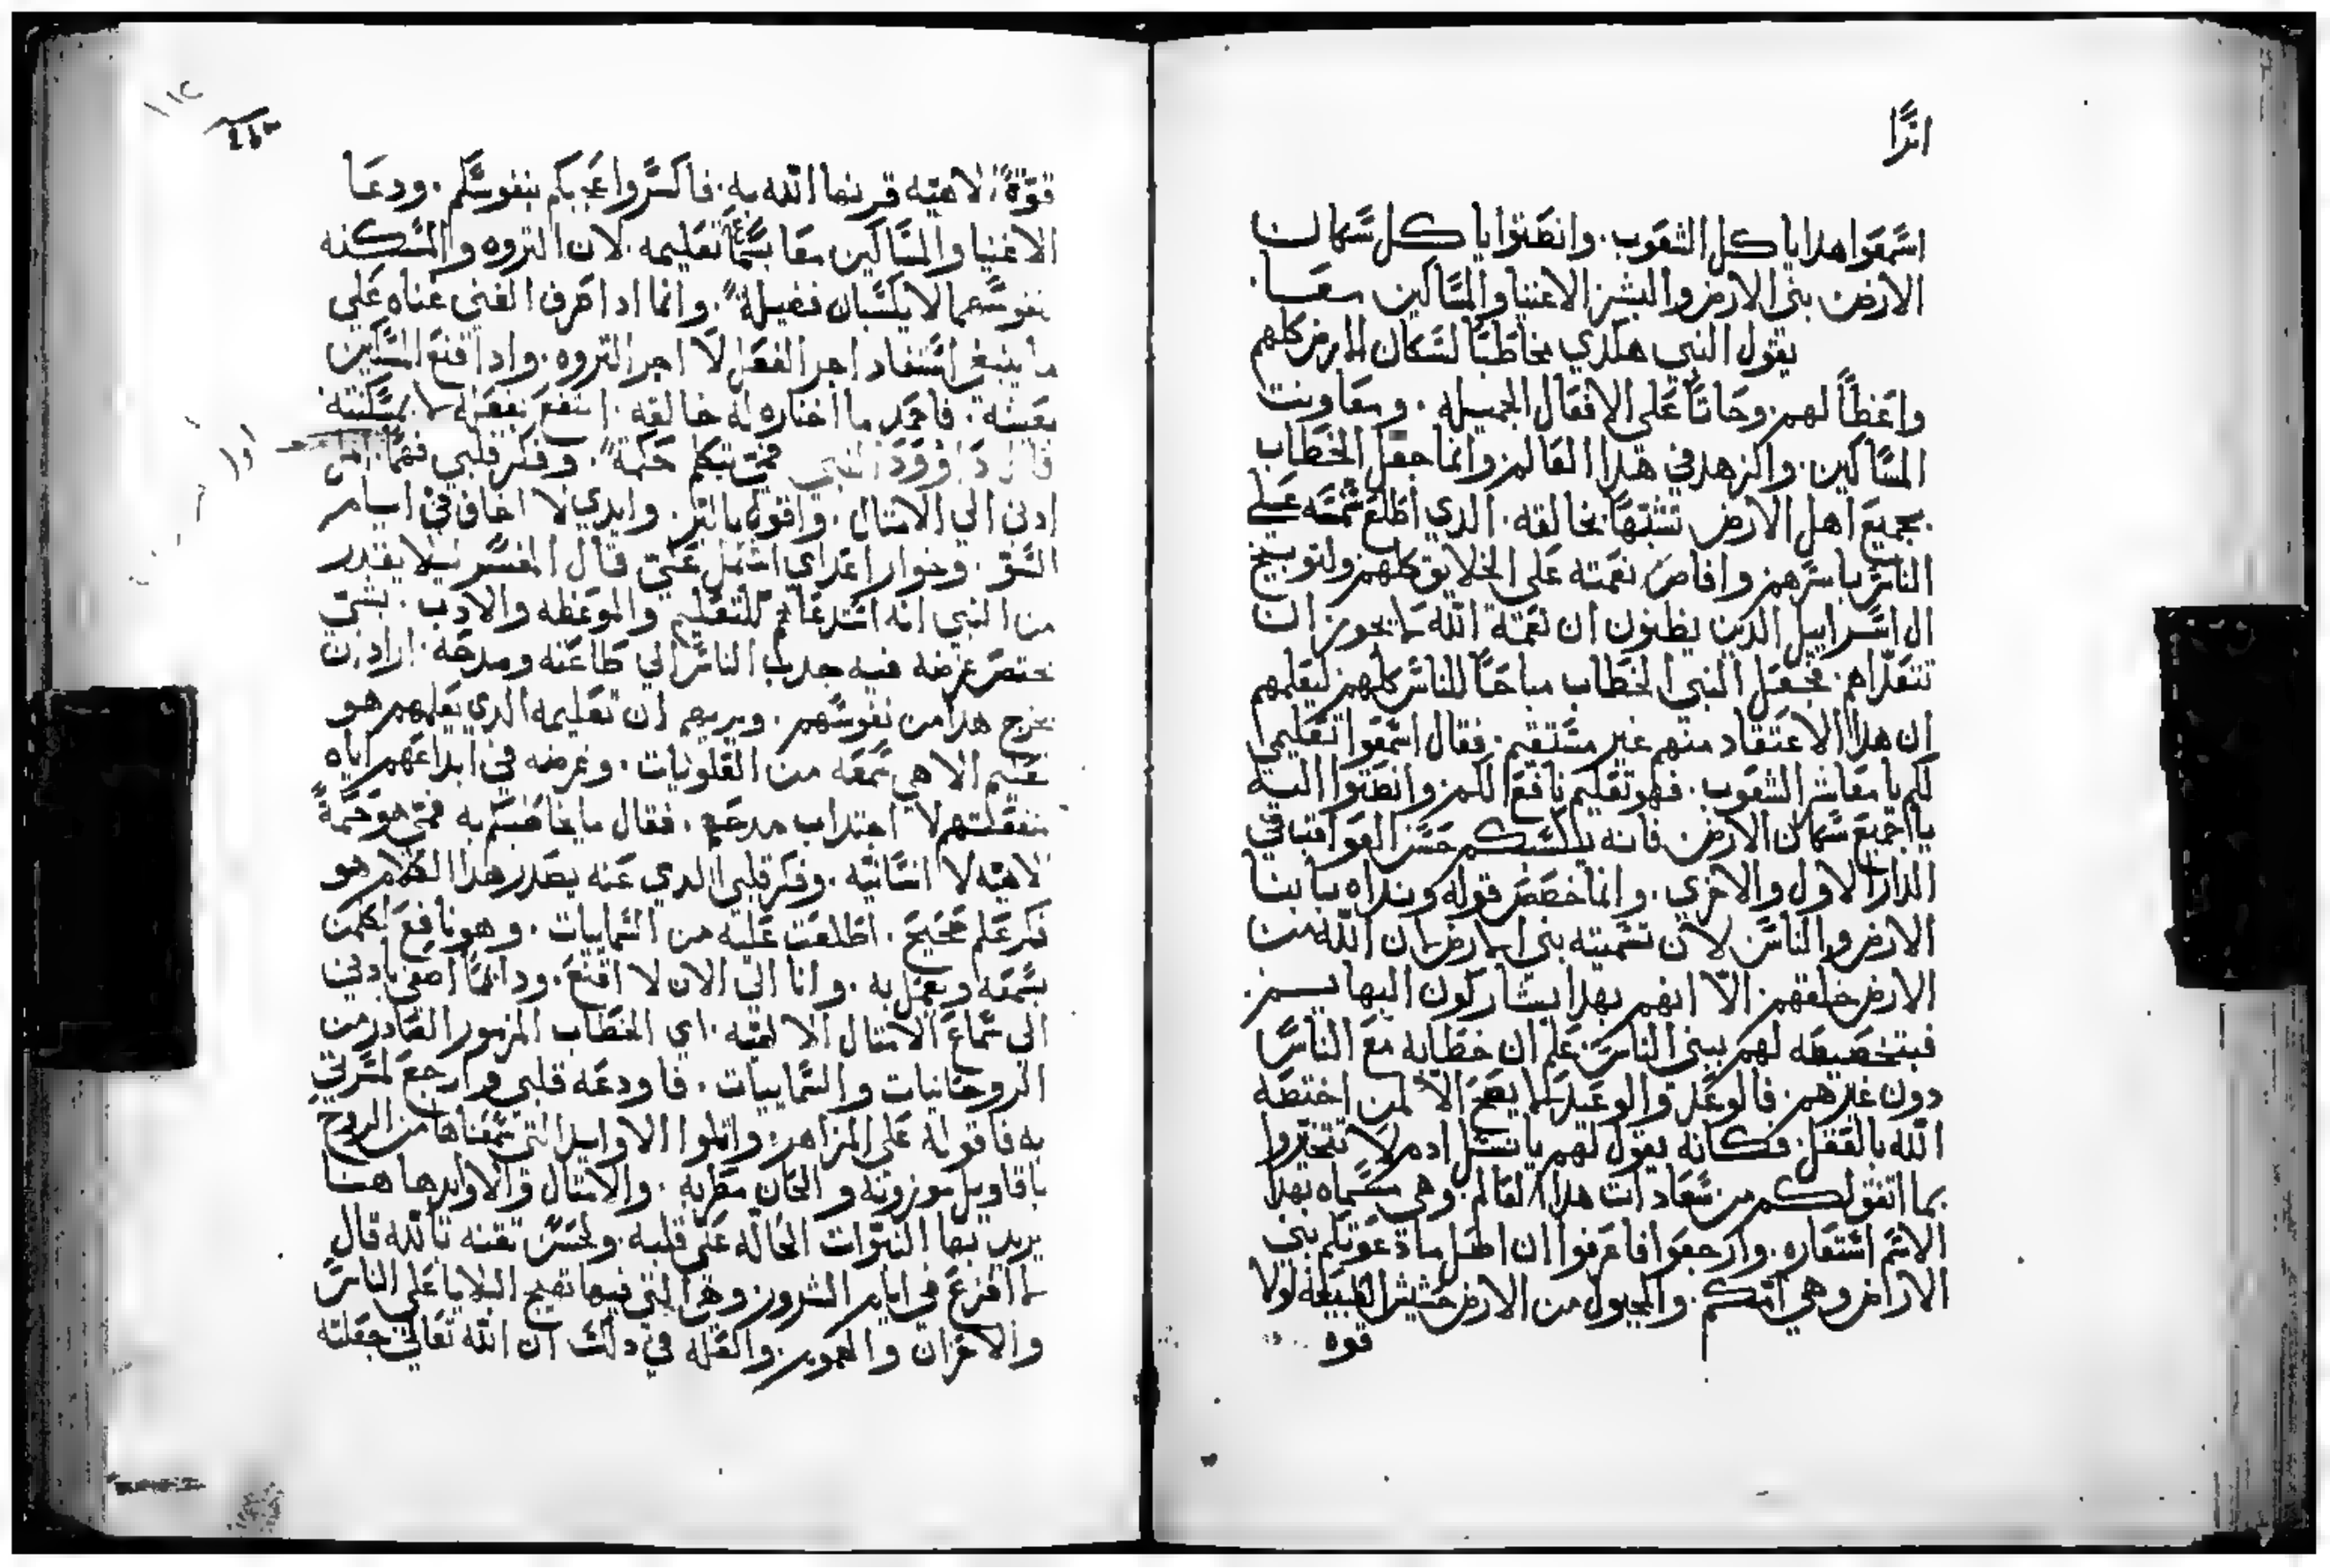 اسمعوا هدا يا كل الشعوب. وانصتوا يا كل سكان
الارض بني الارض والبشر الاغنيا والمساكين معا.
يقول النبي هكدي مخاطبًا لسكان الارض كلهم
واعظًا لهم. وحاثًا على الافعال الجميله. ومعاونت
المساكين. والزهد في هدا العالم. وانما جعل الخطاب
بجميع اهل الارض تشبهًا بخالقه. الدي اطلع شمسه على
الناس باسرهم وافاض نعمته على الخلايق كلهم ولتوبيخ
ال اسراييل الدين يظنون ان نعمة الله لا يجوز ان
تتعداهم. فجعل النبي الخطاب مباحًا للناس كلهم ليعلمهم
ان هدا الاعتقاد منهم غير مستقيم. فقال اسمعوا تعليمي
لكم يا معاشر الشعوب. فهو تعليم نافع لكم وانصتوا اليه
يا جميع سكان الارض فانه يكسبكم حسن العواقب في
الدار الاولى والاخرى. وانما خصص قوله ونداه يا بنا
الارض والناس لان تسميته بني الارض لان الله من
الارض خلقهم. الّا انهم بهدا يشاركون البهايم
فبتخصيصه لهم ببني الناس علم ان خطابه مع الناس
دون غيرهم. فالوعد والوعيد لا يصح الا لمن اختصه
الله بالعقل. فكانه يقول لهم يا نسل ادم لا تغتروا
بما اتفق لكم من سعادات هدا العالم. وهي مسماه بهدا
الاسم استعاره. وارجعوا فاعرفوا ان اصل ما دعوتكم بني
الاراض وهي امكم. والمجبول من الارض خسيس الطبيعه لولا
قوه
قوّةً الاهيّه قرنها الله به. فاكسروا عجبكم بنفوسكم. ودعا
الاغنيا والمساكين معا بسماع تعليمه. لان التروه والمسكنه
نفوسهما لا يكسبان فضيلةً. وانما ادا صرف الغني غناه على
ما ينبغي استفاد اجر الفعل لا اجر التروه. وادا قنع المسكين
بعيشه. فاحمد ما اختاره له خالقه. انتفع بفعله لا بمسكنته
قال داوود النبي فمي يتكلم حكمةً. وفكر قلبي فهمًا امل
ادني الي الامتال. وافوه بالسر. وايدي لا اخاف في ايام
السو. وجوار اعداي اشتمل علي قال المفسر ليلا يقدر
من النبي انه استدعاهم للتعليم والموعظه والادب. بشي
يختص غرضه فيه جدب الناس الي طاعته ومدحه. اراد ان
يخرج هدا من نفوسهم. ويريهم ان تعليمه الدي يعلمهم هو
تعليم الاهي سمعه من العلويات. وغرضه في ابداعهم اياه
منفعتهم لا اجتداب مدحهم. فقال ما يخاطبكم به فمي هو حكمةً
الاهيه لا انسانيّه. وفكر قلبي الدي عنه يصدر هدا الكلام هو
فكر علم صحيح. اطلعت عليه من السماييات. وهو نافع لكل من
يسمعه ويعمل به. وانا الي الان لا اقنع. ودايمًا اصغي بادني
الي سماع الامتال الالهيه. اي الخطاب المزمور الصادر من
الروحانيات والسماييات. فاودعه قلبي وارجع لمسرتي
به فاقوله على المزاهر. واتلوا الاوابد التي سمعناها من الروح
باقاويل موزونه والحان مطربه. والامتال والاوابد ها هنا
يريد بها النبوات الحاله على قلبه. ولحسن تقته تالله قال
لا افزع في ايام الشرور. وهي التي فيها تهيج البلايا على الناس
والاحزان والهموم. والعله في دلك ان الله تعالي جعلته